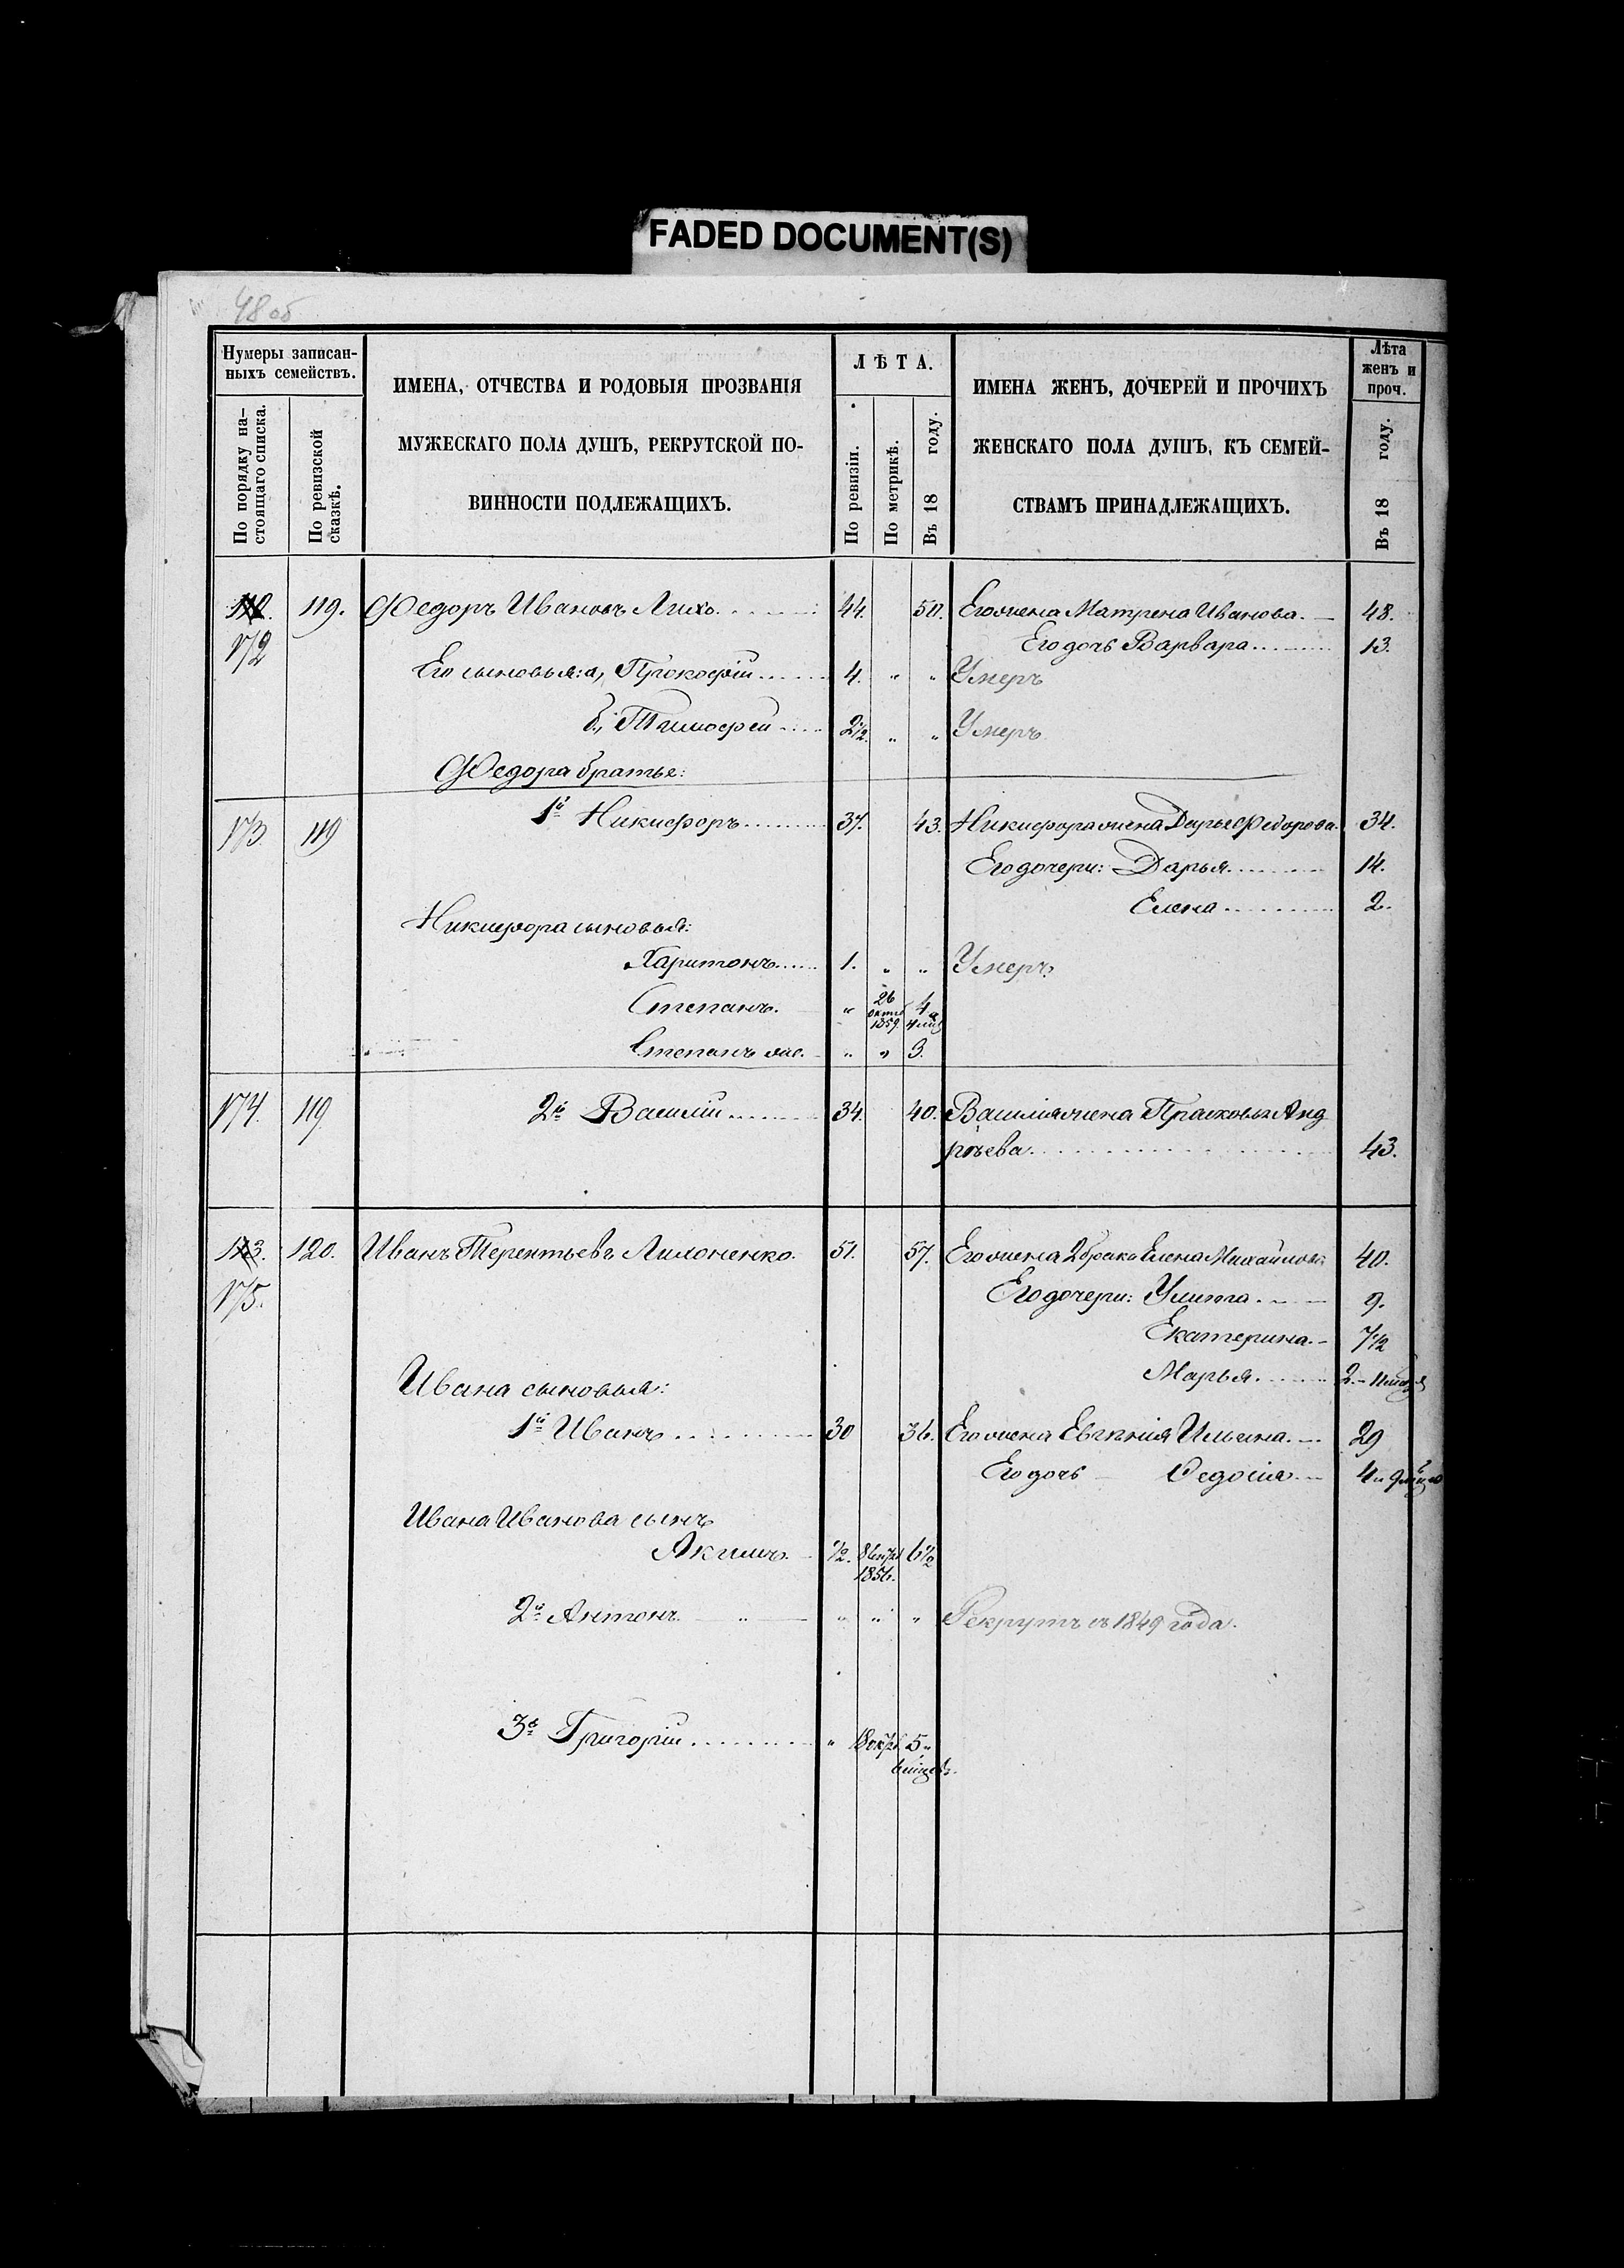 FADED DOCUMENT(S)
48 об
Нумеры записан-
ныхъ семействъ.
По порядку на-
стоящаго списка.
По ревизской
сказкѣ.
ИМЕНА, ОТЧЕСТВА И РОДОВЫЯ ПРОЗВАНІЯ
МУЖЕСКАГО ПОЛА ДУШЪ, РЕКРУТСКОЙ ПО-
ВИННОСТИ ПОДЛЕЖАЩИХЪ.
ЛѢТА.
По ревизіи.
По метрикѣ.
Въ 18 году.
ИМЕНА ЖЕНЪ, ДОЧЕРЕЙ И ПРОЧИХЪ
ЖЕНСКАГО ПОЛА ДУШЪ, КЪ СЕМЕЙ-
СТВАМЪ ПРИНАДЛЕЖАЩИХЪ.
Лѣта
женъ и
проч.
Въ 18 году.
119. Федоръ Ивановъ Лихо. 44. 50. Его жена Матрена Иванова. 48.
172 Его дочь Варвара 13.
Его сыновья: а, Прокофій 4. " " Умеръ
б, Тимофей 2 1/2. " " Умеръ
Федора братье:
173 119 1й Никифоръ 37. 43. Никифора жена Дарья Федорова. 34.
Его дочери: Дарья 14.
Елена 2.
Никифора сыновья:
Харитонъ 1. " " Умеръ
Степанъ. " 26 1859. 4
Степанъ " " 3.
174. 119 2й Василій 34. 40. Василія жена Прасковья Анд
рѣева 43.
123. 120. Иванъ Терентьевъ Лихоненко. 51. 57. Его жена 2 брака Елена Михайлова 40.
175. Его дочери: Улита. 9.
Екатерина. 7 1/2
Марья 2
Ивана сыновья:
1й Иванъ 30 36. Его жена Евгенія Ильина. 29
Его дочь Федосія 4
Ивана Иванова сынъ
Акимъ. 1/2. 1856. 6 1/2
2й Антонъ " " " Рекрутъ съ 1849 года.
3й Григорій " 5